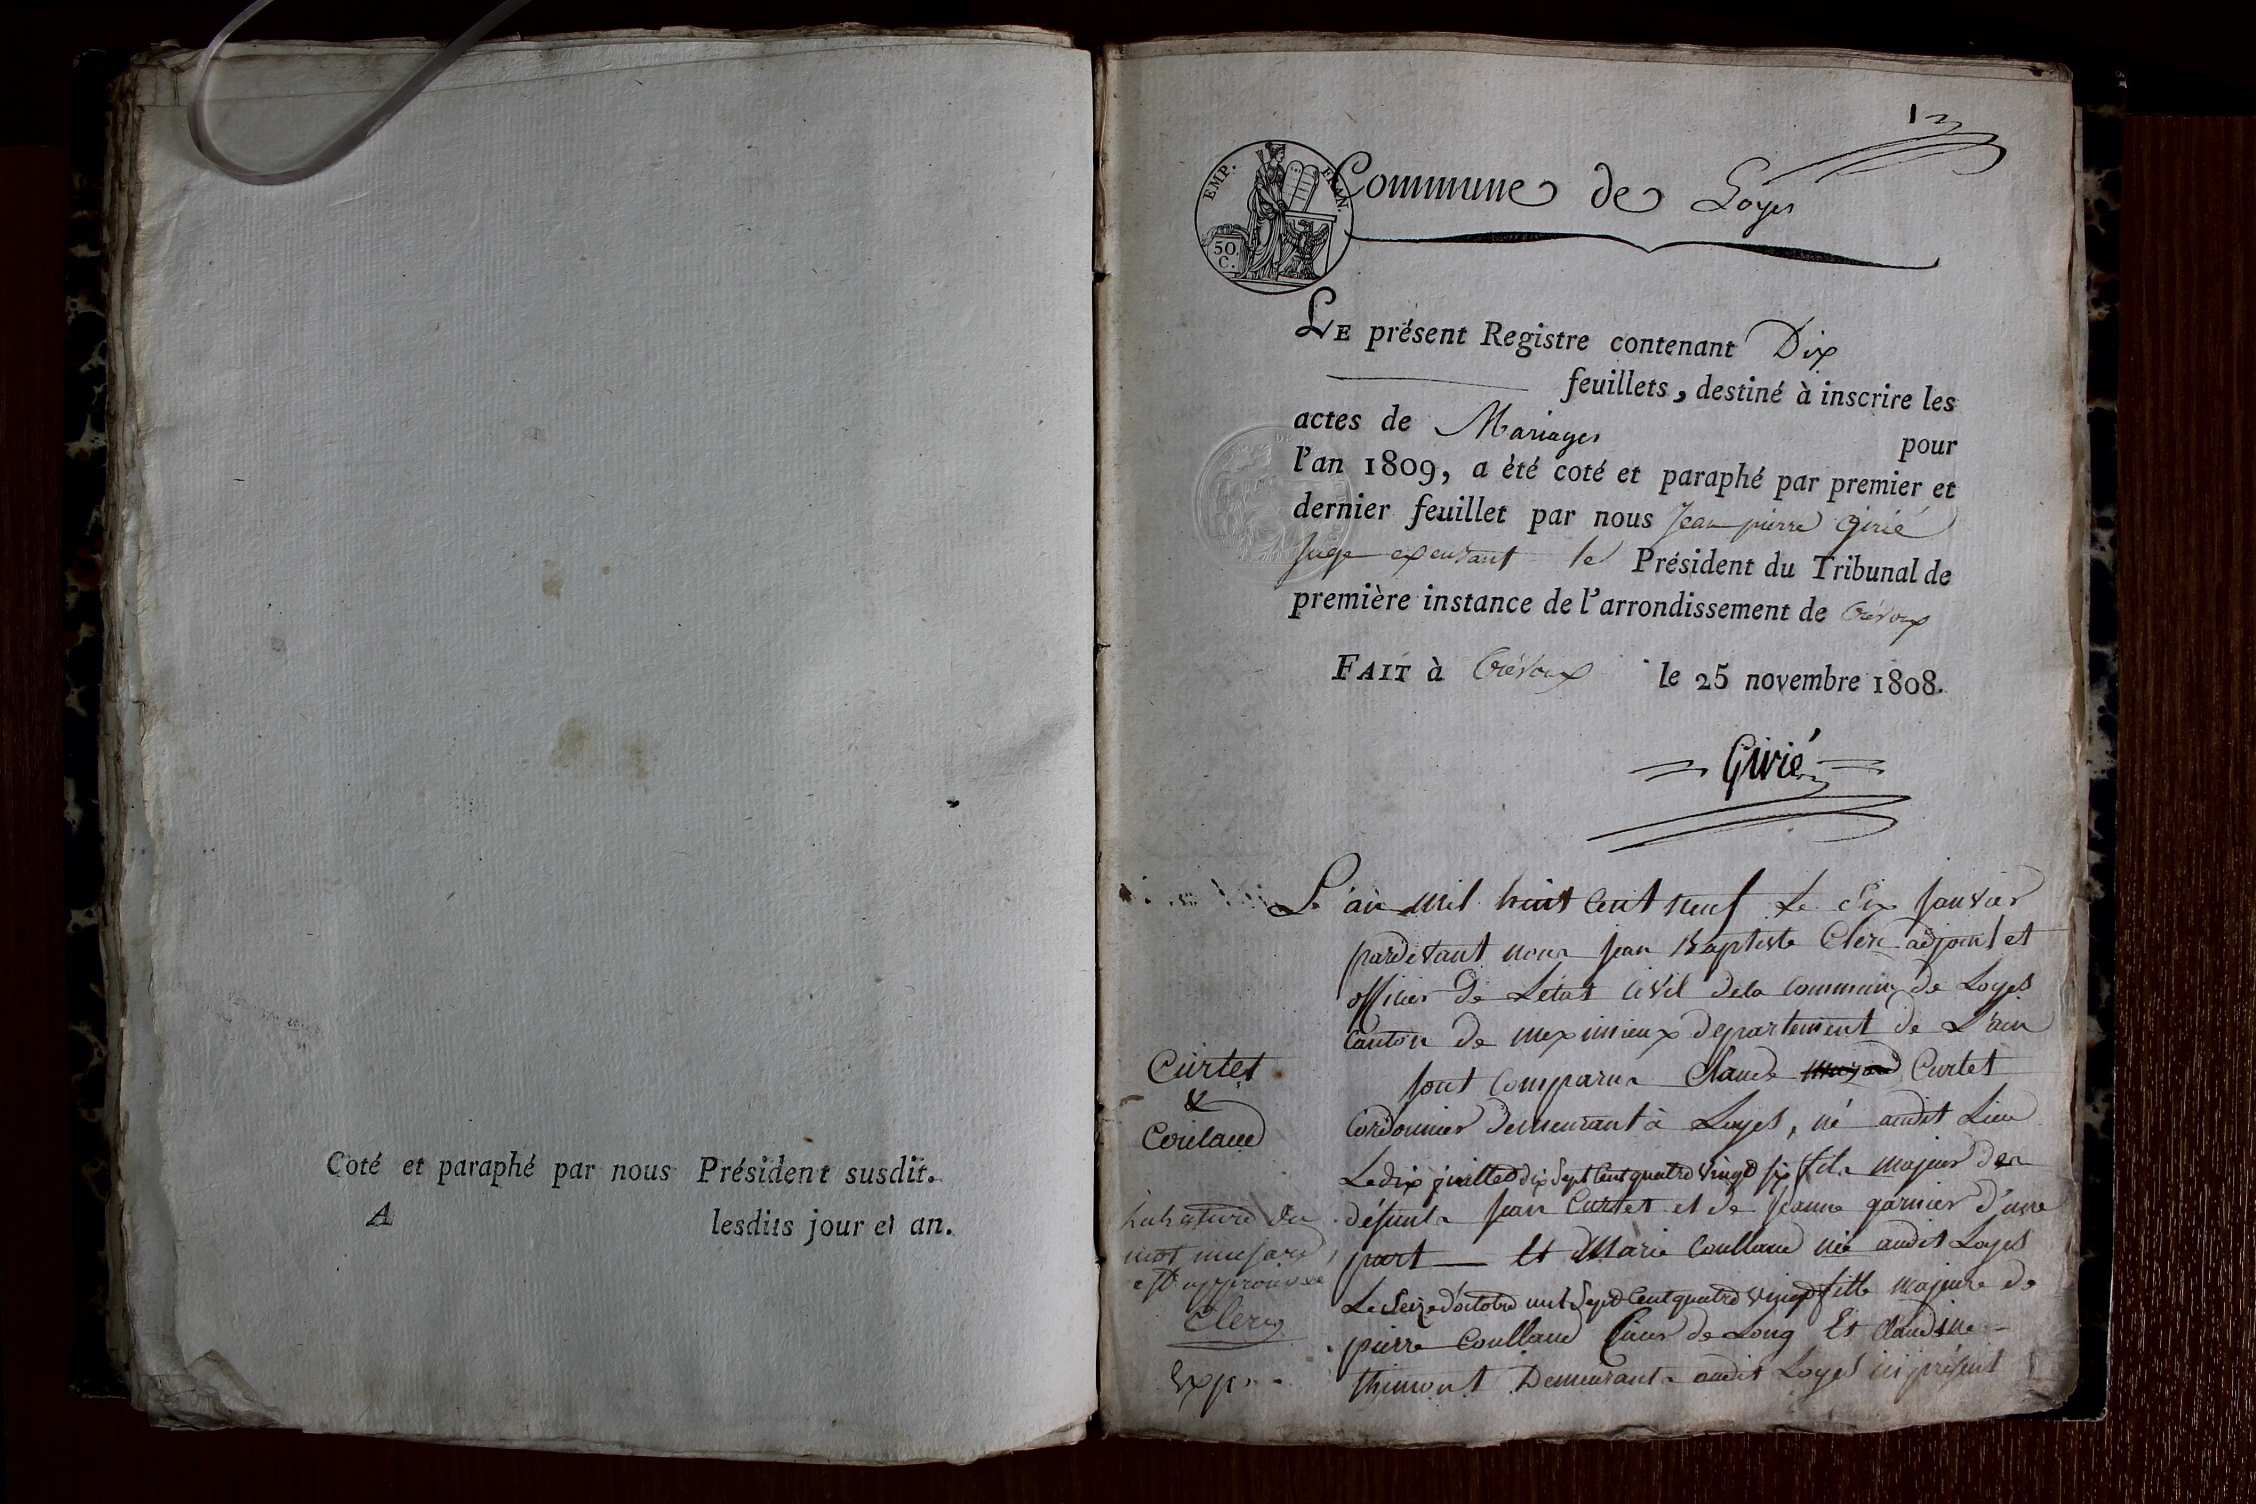 Coté et paraphé par nous Président susdit.
A lesdits jour et an.
1
EMP. FRAN.
50 C.
Commune de Loyes
LE présent Registre contenant Dix
feuillets, destiné à inscrire les
actes de Mariages pour
l'an 1809, a été coté et paraphé par premier et
dernier feuillet par nous Jean pierre Girié
Juge exerçant le Président du Tribunal de
première instance de l'arrondissement de Trévoux
FAIT à Trévoux le 25 novembre 1808.
Girié
L'an mil huit Cent neuf Le Six Janvier
pardevant nous Jean Baptiste Clerc adjoint et
officier De L'état Civil dela Commune de Loyes
Canton de meximieux departement de L'ain
Sont Comparus Claude Curtet
Cordonnier Demeurant à Loyes, né audit Lieu
Le dix juillet dix Sept Cent quatre vingt Six fils majeur des
défunts Jean Curtet et de Jeanne garnier d'une
part Et Marie Coullaud née audit Loyes
Le Seize d'octobre mil Sept Cent quatre vingt fille majeure de
pierre Coullaud Sieur de Long Et Claudine
thimont Demeurants audit Loyes ici présent
Curtet
&
Coulaud
la rature du
mot
est approuvée
Clerc
Exp.